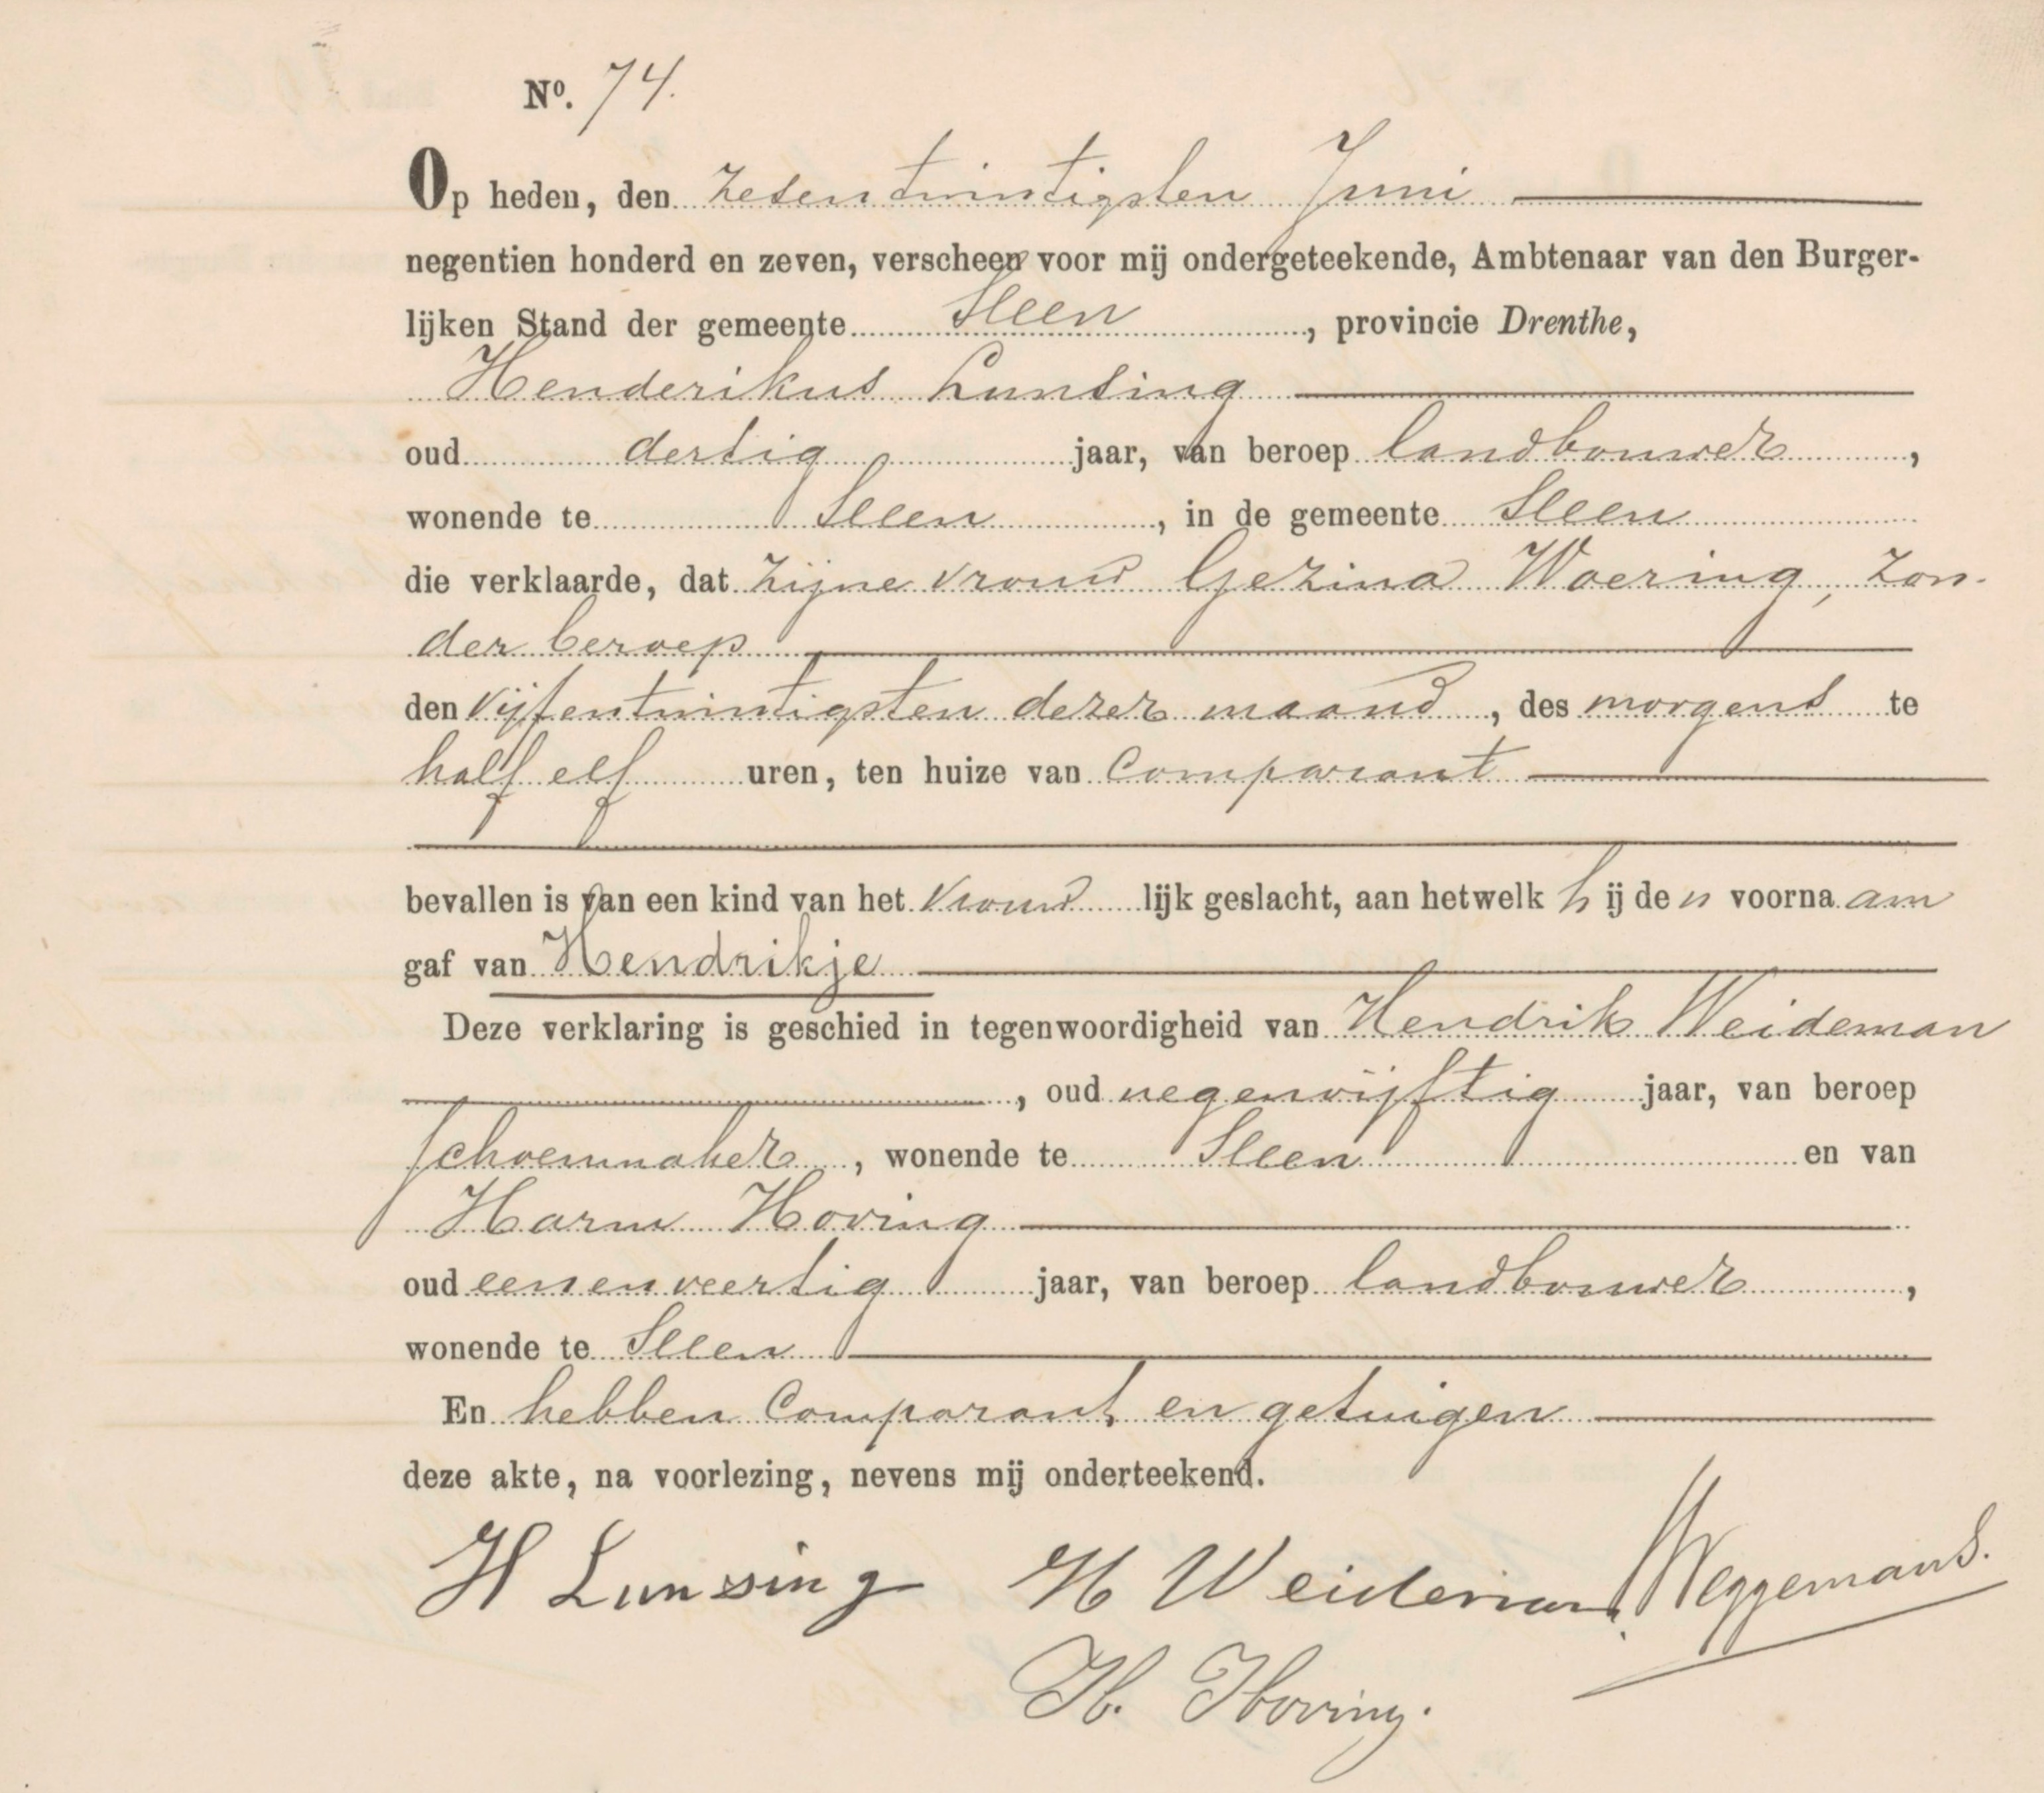 Nº. 74.
Op heden, den zesentwintigsten Juni
negentien honderd en zeven, verscheen voor mij ondergeteekende, Ambtenaar van den Burger-
lijken Stand der gemeente Sleen, provincie Drenthe,
Henderikus Lunsing
oud dertig jaar, van beroep landbouwer,
wonende te Sleen, in de gemeente Sleen
die verklaarde, dat zijne vrouw Gezina Woering, zon-
der beroep
den vijfentwintigsten dezer maand, des morgens te
half elf uren, ten huize van comparant
bevallen is van een kind van het vrouwlijk geslacht, aan hetwelk hij den voornaam
gaf van Hendrikje
Deze verklaring is geschied in tegenwoordigheid van Hendrik Weideman
, oud negenvijftig jaar, van beroep
schoenmaker, wonende te Sleen en van
Harm Hoving
oud eenenveertig jaar, van beroep landbouwer,
wonende te Sleen
En hebben Comparant, en getuigen
deze akte, na voorlezing, nevens mij onderteekend.
H Lunsing H Weideman Weggemans.
H. Hoving.